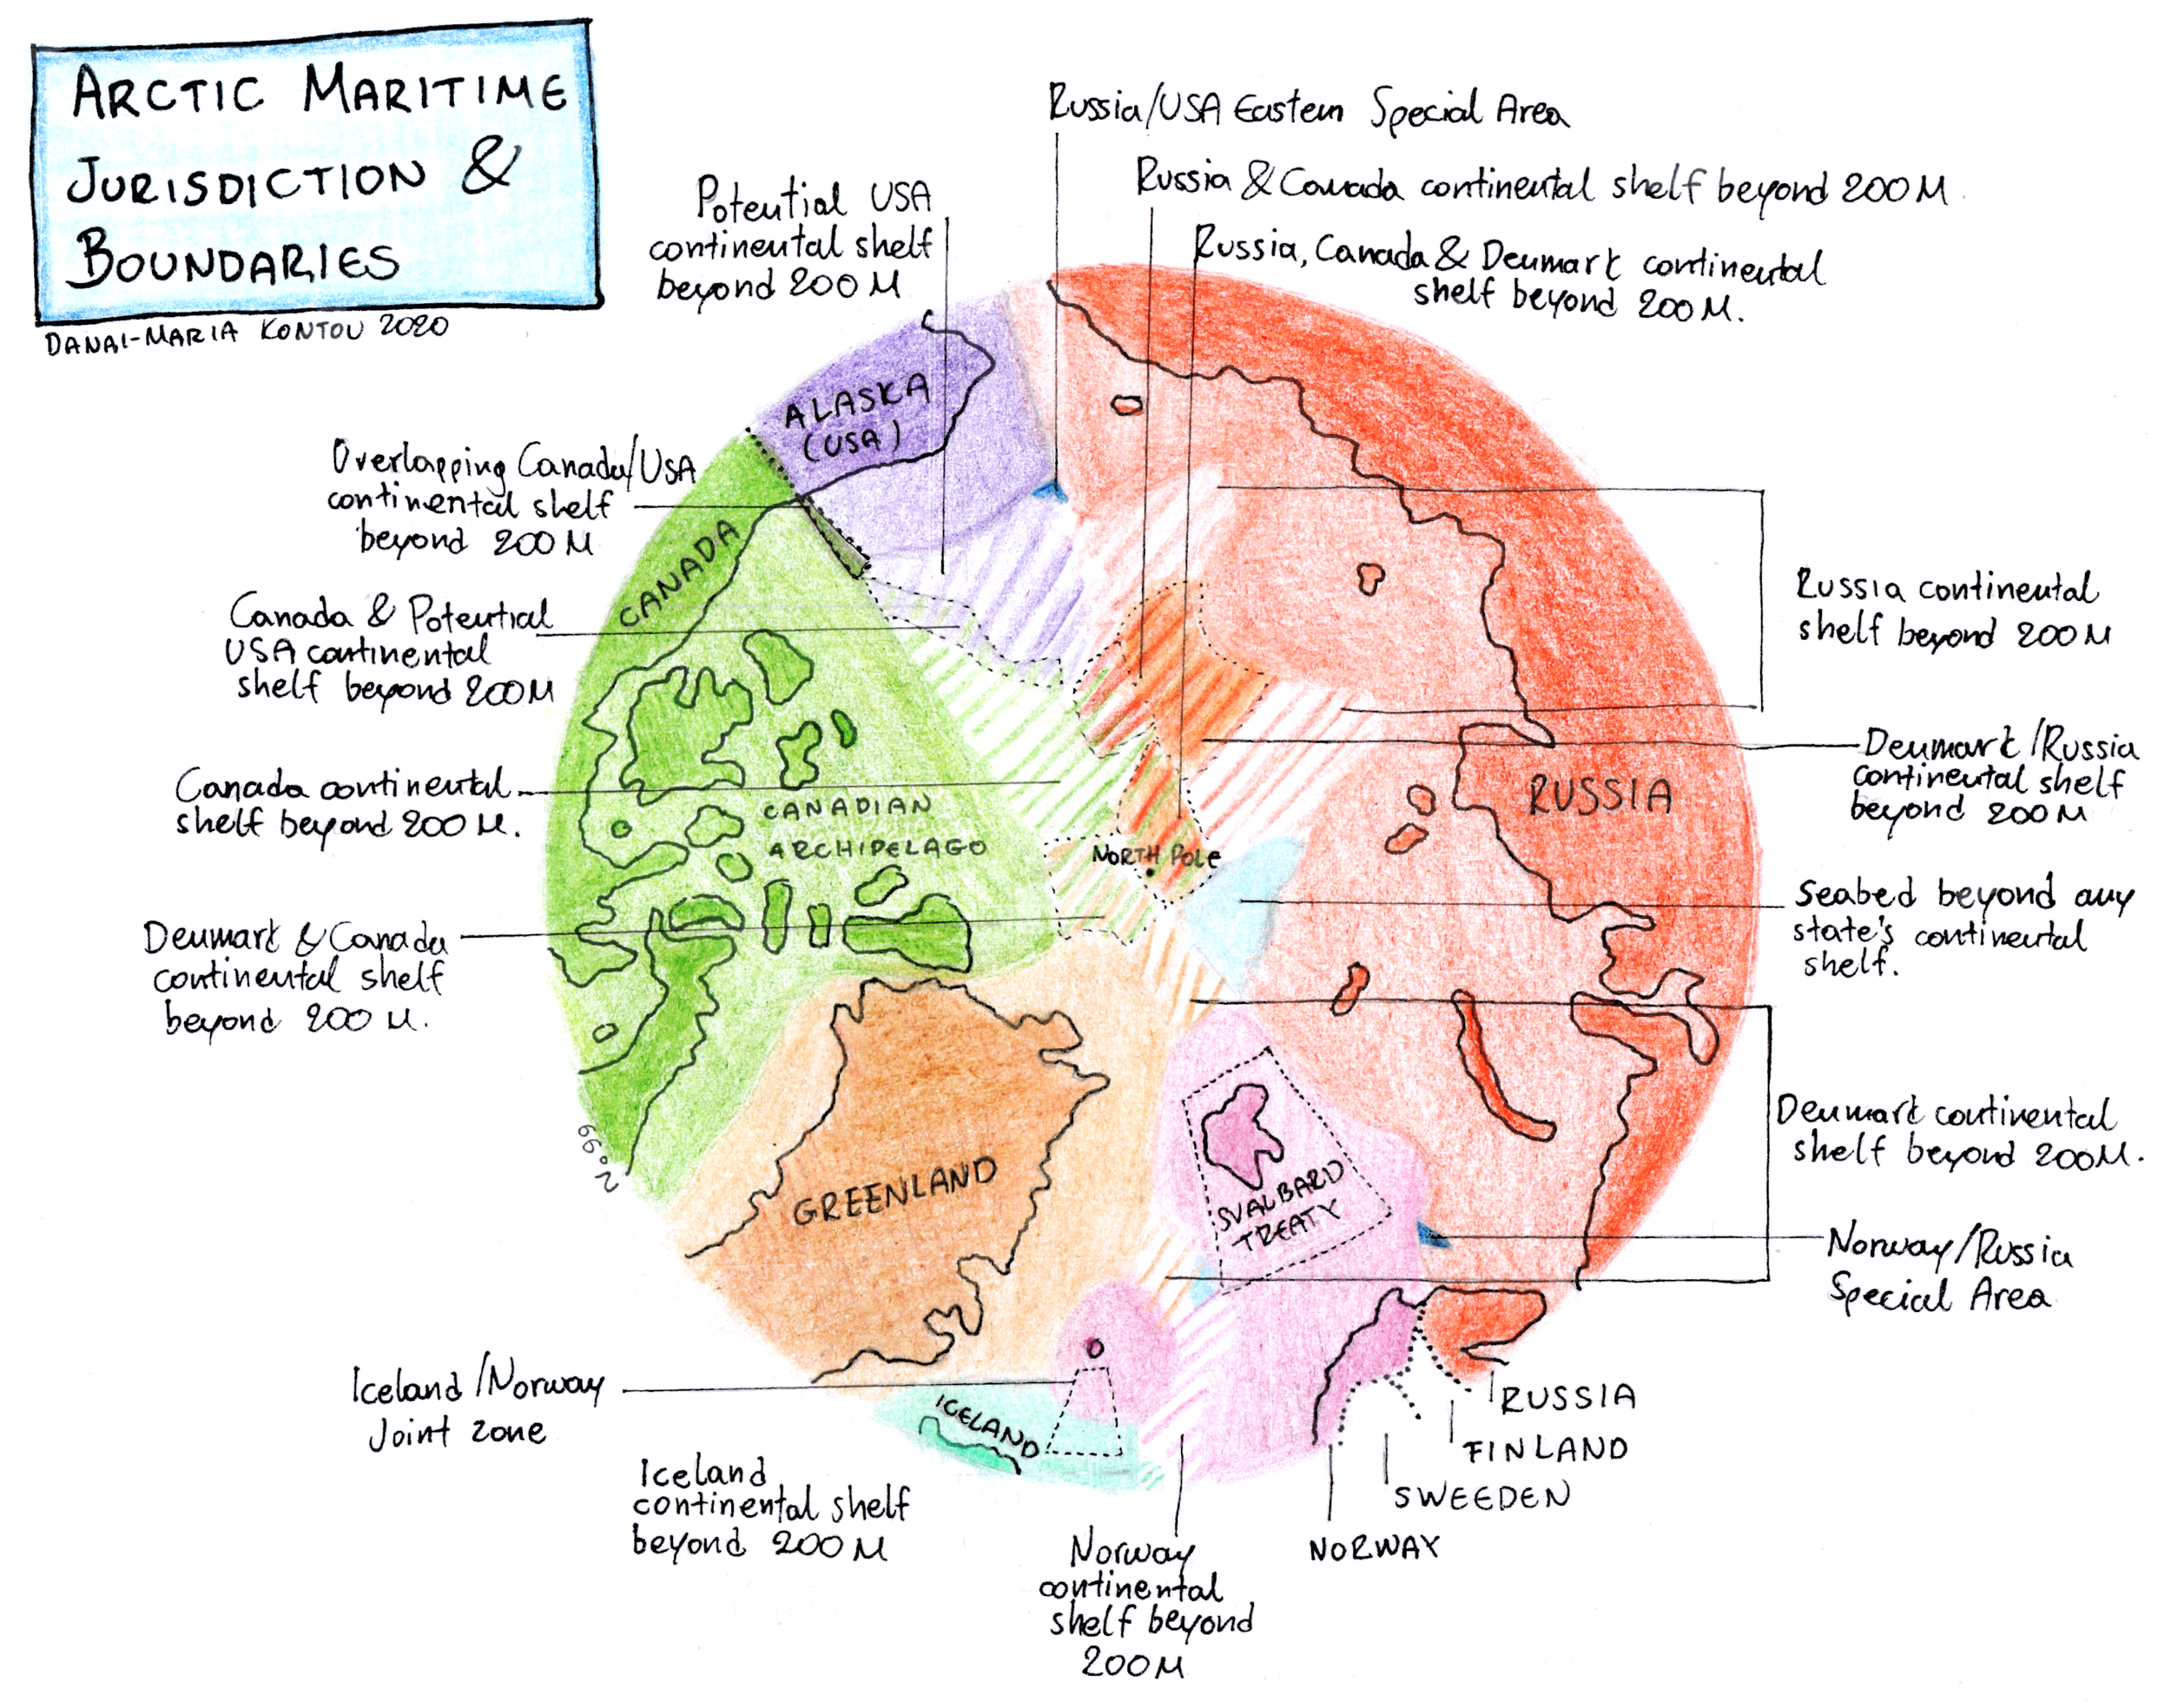 ARCTIC MARITIME
JURISDICTION &
BOUNDARIES
DANAI-MARIA KONTOU 2020
Russia/USA Eastern Special Area
Russia & Canada continental shelf beyond 200 M.
Russia, Canada & Denmark continental
shelf beyond 200 M.
Potential USA
continental shelf
beyond 200 M
ALASKA
(USA)
Overlapping Canada/USA
continental shelf
beyond 200 M
CANADA
Canada & Potential
USA continental
shelf beyond 200M
Russia continental
shelf beyond 200 M
Canada continental
shelf beyond 200 M.
CANADIAN
ARCHIPELAGO
NORTH POLE
RUSSIA
Denmark/Russia
continental shelf
beyond 200 M
Seabed beyond any
state's continental
shelf.
Denmark & Canada
continental shelf
beyond 200 M.
66°N
GREENLAND
SVALBARD
TREATY
Denmark continental
shelf beyond 200M.
Norway/Russia
Special Area
Iceland/Norway
Joint zone
ICELAND
Iceland
continental shelf
beyond 200 M
Norway
continental
shelf beyond
200M
NORWAY
SWEEDEN
FINLAND
RUSSIA